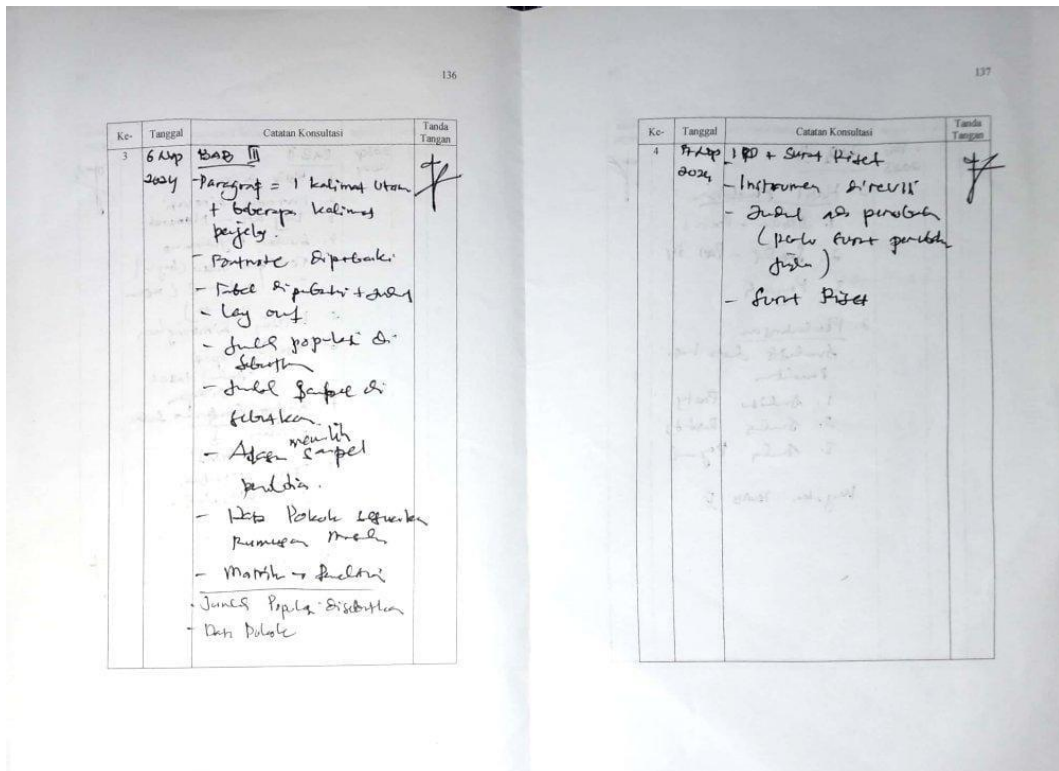 136
Ke- Tanggal Catatan Konsultasi Tanda Tangan
3 6 2024 BAB III
- Paragraf = 1 kalimat utama
+ beberapa kalimat
penjelas.
- Footnote diperbaiki
- Tabel diperbaiki + judul
- Lay out
- Jumlah populasi di
sebutkan
- Jumlah sampel di
sebutkan.
- Alasan memilih sampel
penelitian.
- Data Pokok sesuaikan
rumusan masalah
- Matrik → penelitian
- Jumlah Populasi disebutkan
- Data Pokok
137
Ke- Tanggal Catatan Konsultasi Tanda Tangan
4 2024 IPD + Surat Riset
- Instrumen direvisi
- Judul ada perubahan
(perlu surat perubahan
judul)
- Surat Riset